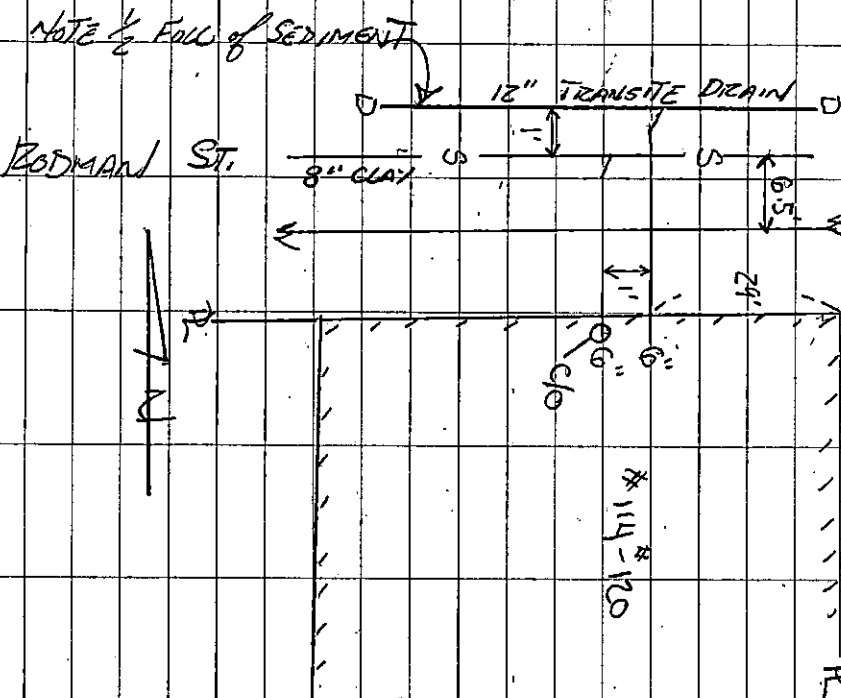 NOTE ½ FULL of SEDIMENT
12" TRANSITE DRAIN
D
D
1'
RODMAN ST.
8" CLAY
S
S
6.5'
W
W
1'
29'
PL
6"
6"
C/O
N
#114-#120
PL